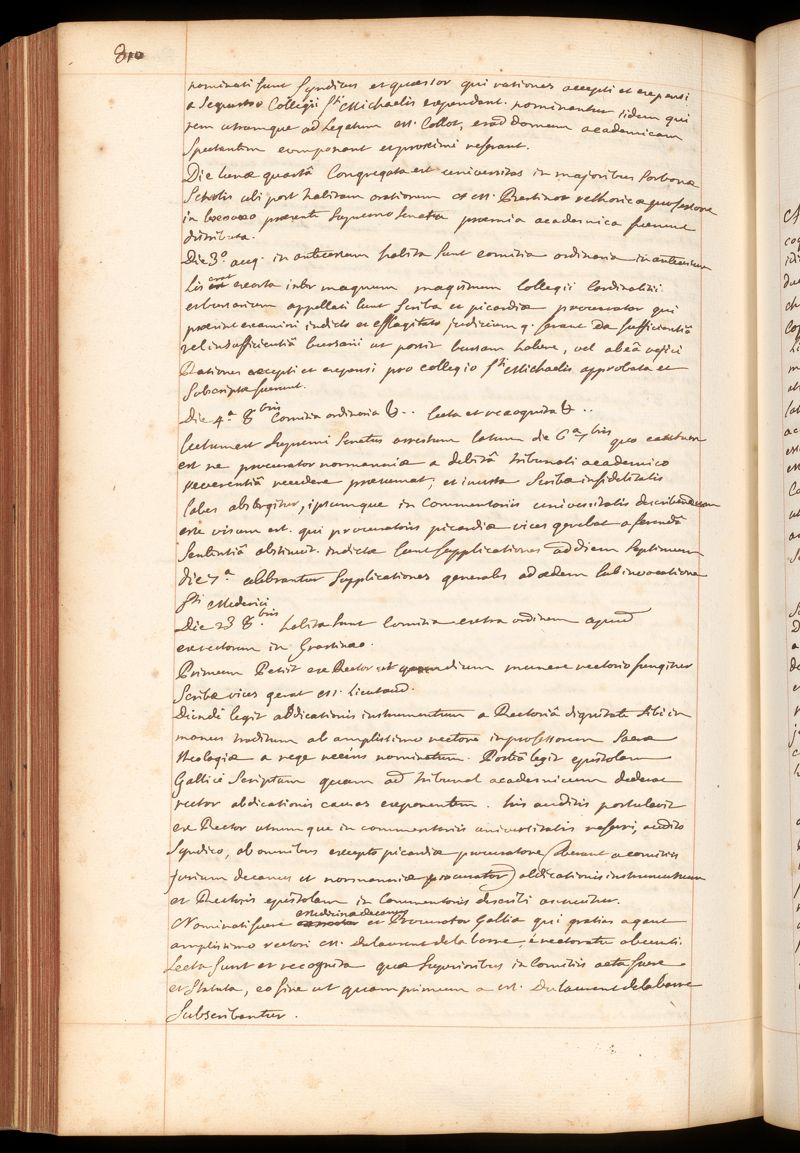 310
nominati sunt Syndicus et quaestor qui rationes accepti et expensi
a Sequestro Collegii Sti Michaelis expendant. nominantur iidem qui
rem utramque ad Legatum M. Collot, et ad domum academicam
Spectantem componant et proximè referant.
Die lunae quartâ Congregata est universitas in majoribus Sorbonae
Scholis ubi post habitam orationem a M. rethoricae professore
in praesente Supremo Senatu praemia academica fuerunt
distributa.
Die 3.° aug. in habita sunt comitia ordinaria
lis erat exorta inter magnum magistrum Collegii Cardinalitii
et bursarium appellati sunt Scriba et picardiae procurator qui
praesint examini indicto et efflagitato, judicium q. ferant De sufficientiâ
vel insufficientiâ bursarii ut possit bursam habere, vel ab eâ rejici
Rationes accepti et expensi pro collegio Sti Michaelis approbata et
Subscripta fuerunt.
Die 4.a 8bris Comitia ordinaria &.. lecta et recognita &..
lectum est Supremi Senatus arrestum latum de 6a 7bris quo cautum
est ne procurator normanniae a debitâ tribunali academico
reverentiâ recedere praesumat, et inusta Scribae infidelitatis
labes abstergitur, ipsumque in Commentariis universitatis describendum
esse visum est. qui procuratoris picardiae vices gerebat a ferendâ
Sententiâ abstinuit. indictae sunt supplicationes ad diem Septimum
die 7.a celebrantur Supplicationes generales ad aedem sub invocatione
Sti Mederici
Die 23 8.bris habita sunt Comitia extra ordinem apud
exrectorem in Grassinaeo.
Primum Petiit ex Rector ut quamdium munere rectorio fungitur
Scribae vices gerat M. Lieutaud.
Deinde legit abdicationis instrumentum a Rectoriâ dignitate sibi in
manus traditum ab amplissimo rectore in professorem Sacrae
theologiae a rege recens nominatum. Posteà legit epistolam
Gallicè Scriptam quam ad tribunal academicum dederat
rector abdicationis causas exponentem. his auditis postulavit
ex Rector utrumque in commentariis universitatis referri, audito
Syndico, ab omnibus excepto picardiae procuratore (aberant a comitiis
jurium decanus et normanniae procurator) abdicationis instrumentum
et Rectoris epistolam in Commentariis describi
Nominati fuere medicinae decanus et Procurator Galliae qui gratias agant
amplissimo rectori M. Dulaurent de la barre è rectoratu abeunti.
Lecta Sunt et recognita quae Superioribus in Comitiis acta fuere
et Statuta, eo fine ut quamprimum a M. Dulaurent de la barre
Subscribantur.